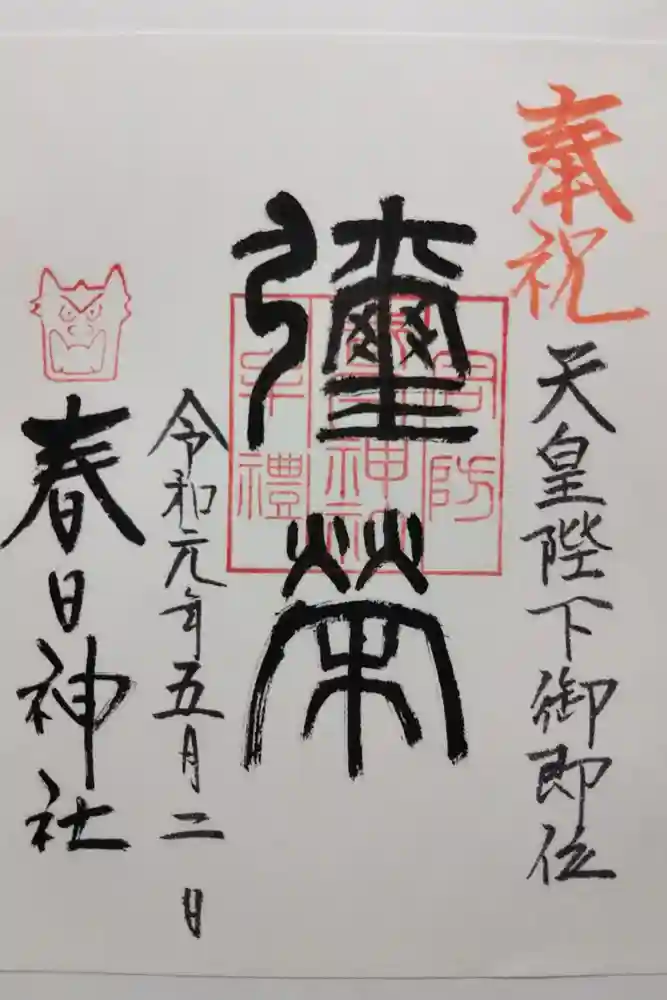 奉祝
天皇陛下御即位
彌榮
周防
春日神社
牟禮
令和元年五月二日
春日神社